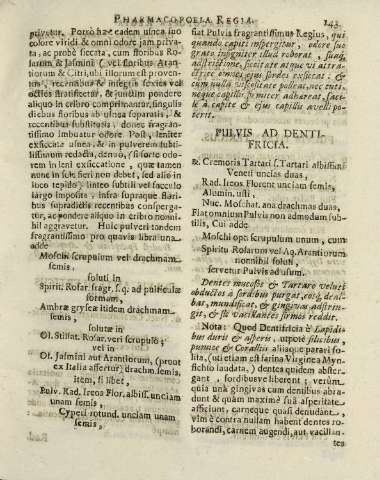 PHARMACOPOEIA REGIA. 143
privetur. Porrò hæc eadem usnea suo
colore viridi & omni odore jam priva-
ta, ac probè siccata, cum floribus Ro-
sarum & Jasmini (vel floribus Aran-
tiorum & Citri, ubi illorum est proven-
tus, recentibus & integris sexies vel
octies stratificetur, & singulis pondere
aliquo in cribro comprimantur, singulis
diebus floribus ab usnea separatis, &
recentibus substitutis, donec fragran-
tissimo imbuatur odore Post, leniter
exsiccata usnea, & in pulverem subti-
lissimum redacta, denuo, si forte odo-
rem in leni exsiccatione, quæ tamen
nunc in sole fieri non debet, sed alio in
loco tepido) linteo subtili vel sacculo
largo imposita, infra supraque floribus
supradictis recentibus conspergatur,
ac pondere aliquo in cribro nonni-
hil aggravetur. Huic pulveri tandem
fragrantissimo pro quavis libra una
adde
Moschi scrupulum vel drachmam
semis,
soluti in
Spirit. Rosar fragr. s.q. ad pulticulæ
formam,
Ambræ gryseæ itidem drachmam
semis,
solutæ in
Ol. Stillat. Rosar. veri scrupulo;
vel in
Ol. Jasmini aut Arantiorum, (prout
ex Italia affertur) drachm. semis,
item, si libet,
Pulv. Rad. Ireos Flor. albiss. unciam
unam semis,
Cyperi rotund. unciam unam
semis,
fiat Pulvis fragrantissimus Regius, qui
quando capiti inspergitur, odore suo
grato insigniter illud roborat, suaq;
adstrictione, siccitate atque vi attra-
ctrice omnes ejus sordes exsiccat: &
cum nulla viscositate polleat, nec cuti,
neque capillis firmiter adhæreat, faci-
lè à capite & ejus capillis avelli po-
terit.
PULVIS AD DENTI-
FRICIA.
℞. Cremoris Tartari s. Tartari albissimi
Veneti uncias duas,
Rad. Ireos Florent unciam semis,
Alumin. usti,
Nuc. Moschat. ana drachmas duas,
Fiat omnium Pulvis non admodum sub-
tilis, Cui adde
Moschi opt. scrupulum unum, cum
Spiritu Rosarum vel Aq. Arantiorum
nonnihil soluti,
servetur Pulvis ad usum.
Dentes mucosos & Tartaro veluti
obductos à sordibus purgat, eosq; deal-
bat, mundificat, & gingivas adstrin-
git, & sic vacillantes firmos reddit.
Nota: Quod Dentifricia è Lapidi-
bus duris & asperis, utpotè silicibus,
pumice & Corallis aliisque parari so-
lita, (uti etiam est farina Virginea Myn-
sichto laudata,) dentes quidem abster-
gant, sordibusve liberent; verùm
quia unâ gingivas cum dentibus abra-
dunt & quàm maximè suâ asperitate
afficiunt, carneque quasi denudant,
vim è contra nullam habent dentes ro-
borandi, carnem augendi, aut vacillan-
tes